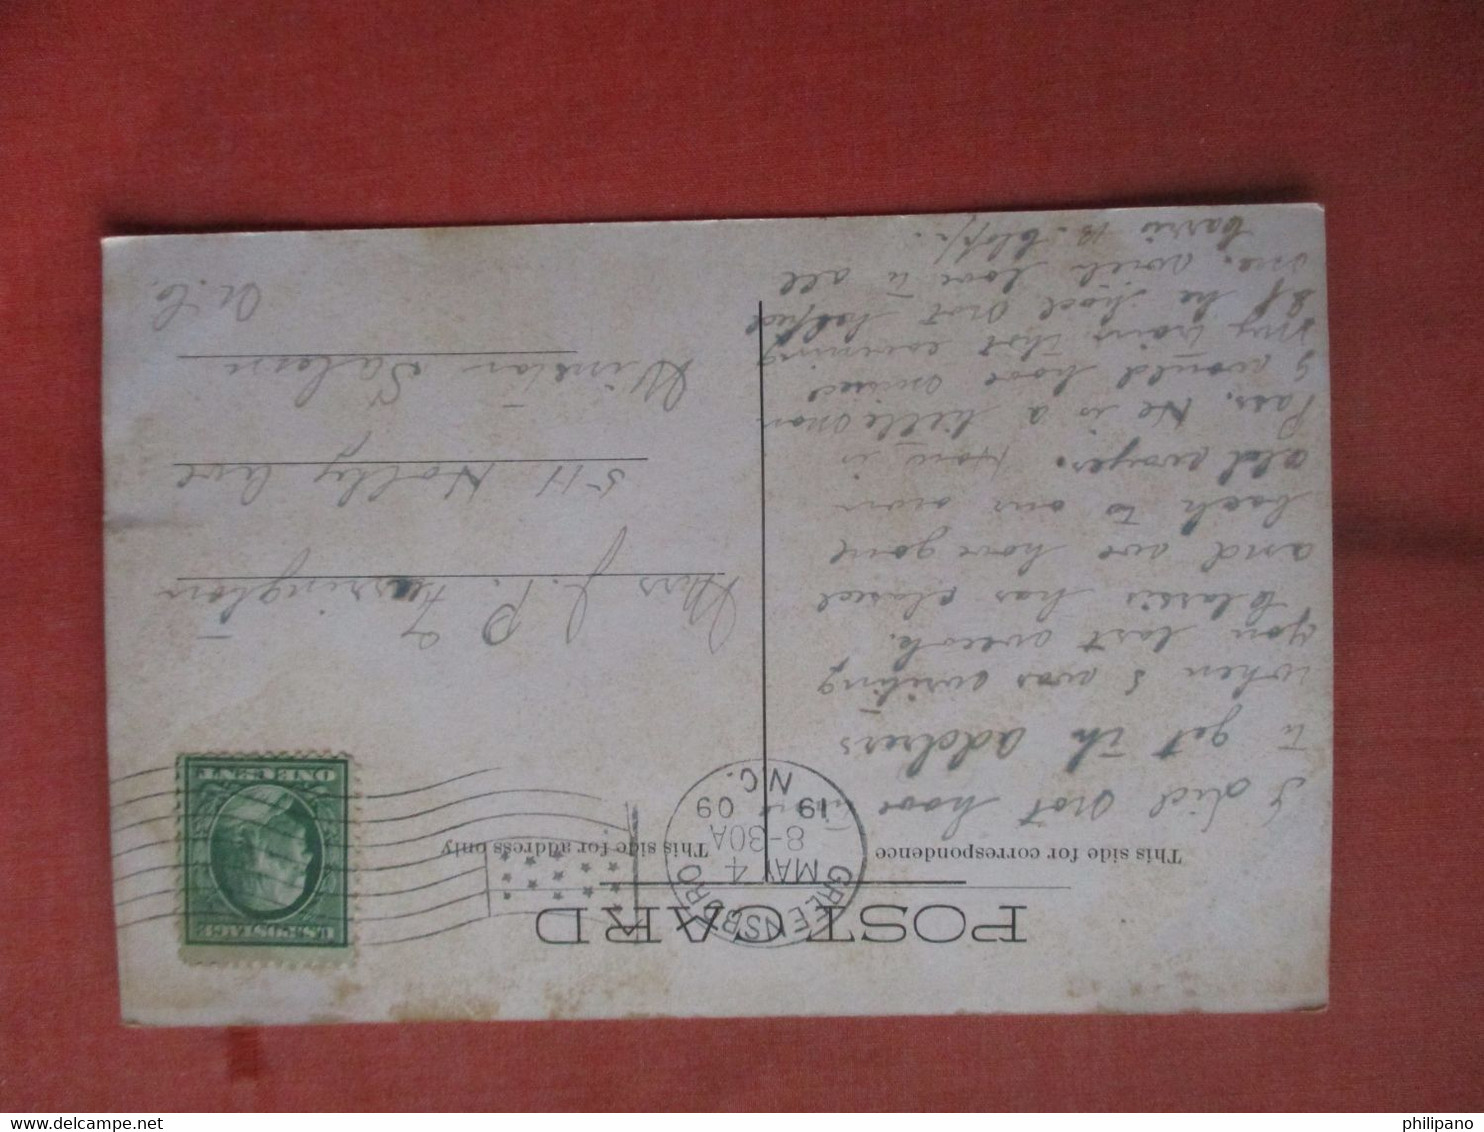 POST CARD
This side for correspondence
This side for address only
GREENSBORO
MAY 4
8-30A
19 09
N.C.
U.S. POSTAGE
ONE CENT
I did not have time
to get th address
when I was writing
you last week.
has closed
and we have gone
back to our own
old ways. How is
Pass. He is a little man
I would have missed
my train that evening
if he had not halped
me. with love to all
Carrie B.
Mrs J. P. Farrington
511 Holly Ave
Winston Salem
N.C.
philipano